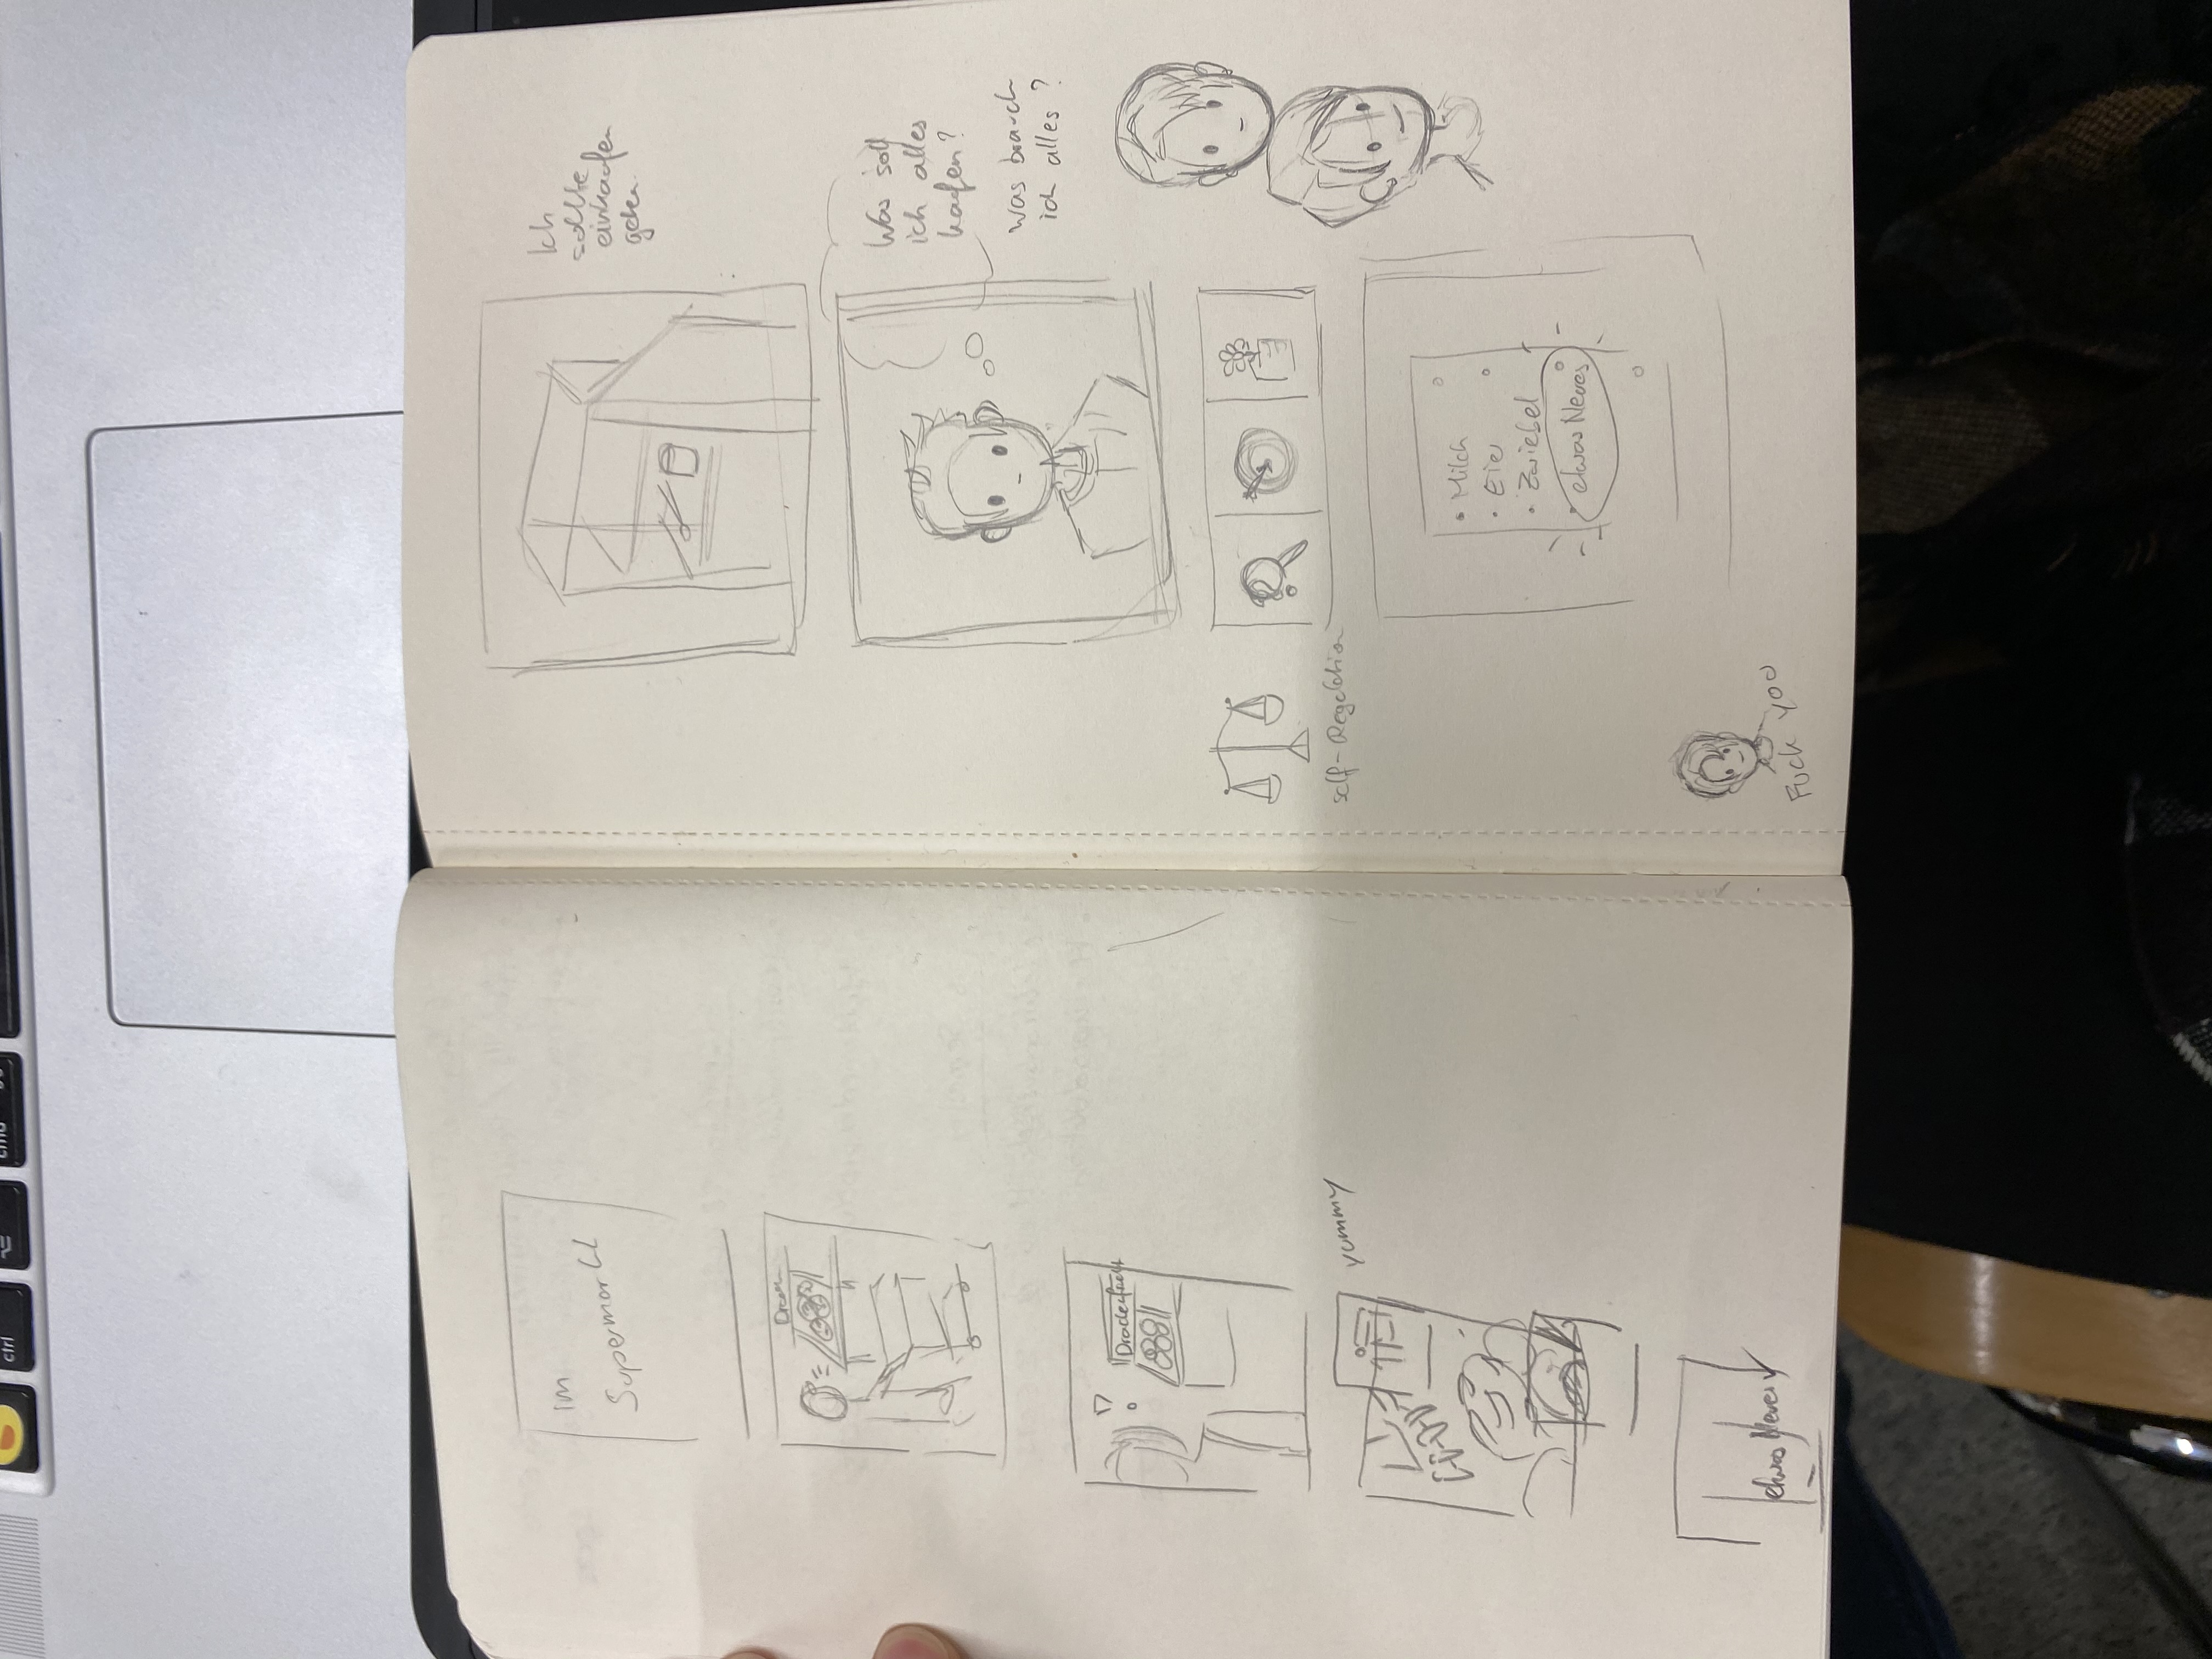 ctrl
cmd
im
Supermarkt
Drachenfrucht
yummy
etwas Neues
Ich
sollte
einkaufen
gehen.
Was soll
ich alles
kaufen?
was brauch
ich alles?
self-Regulation
• Milch
• Eier
• Zwiebel
• etwas Neues
Fuck you